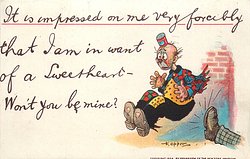 It is impressed on me very forcibly
that I am in want
of a Sweetheart-
Won't you be mine?